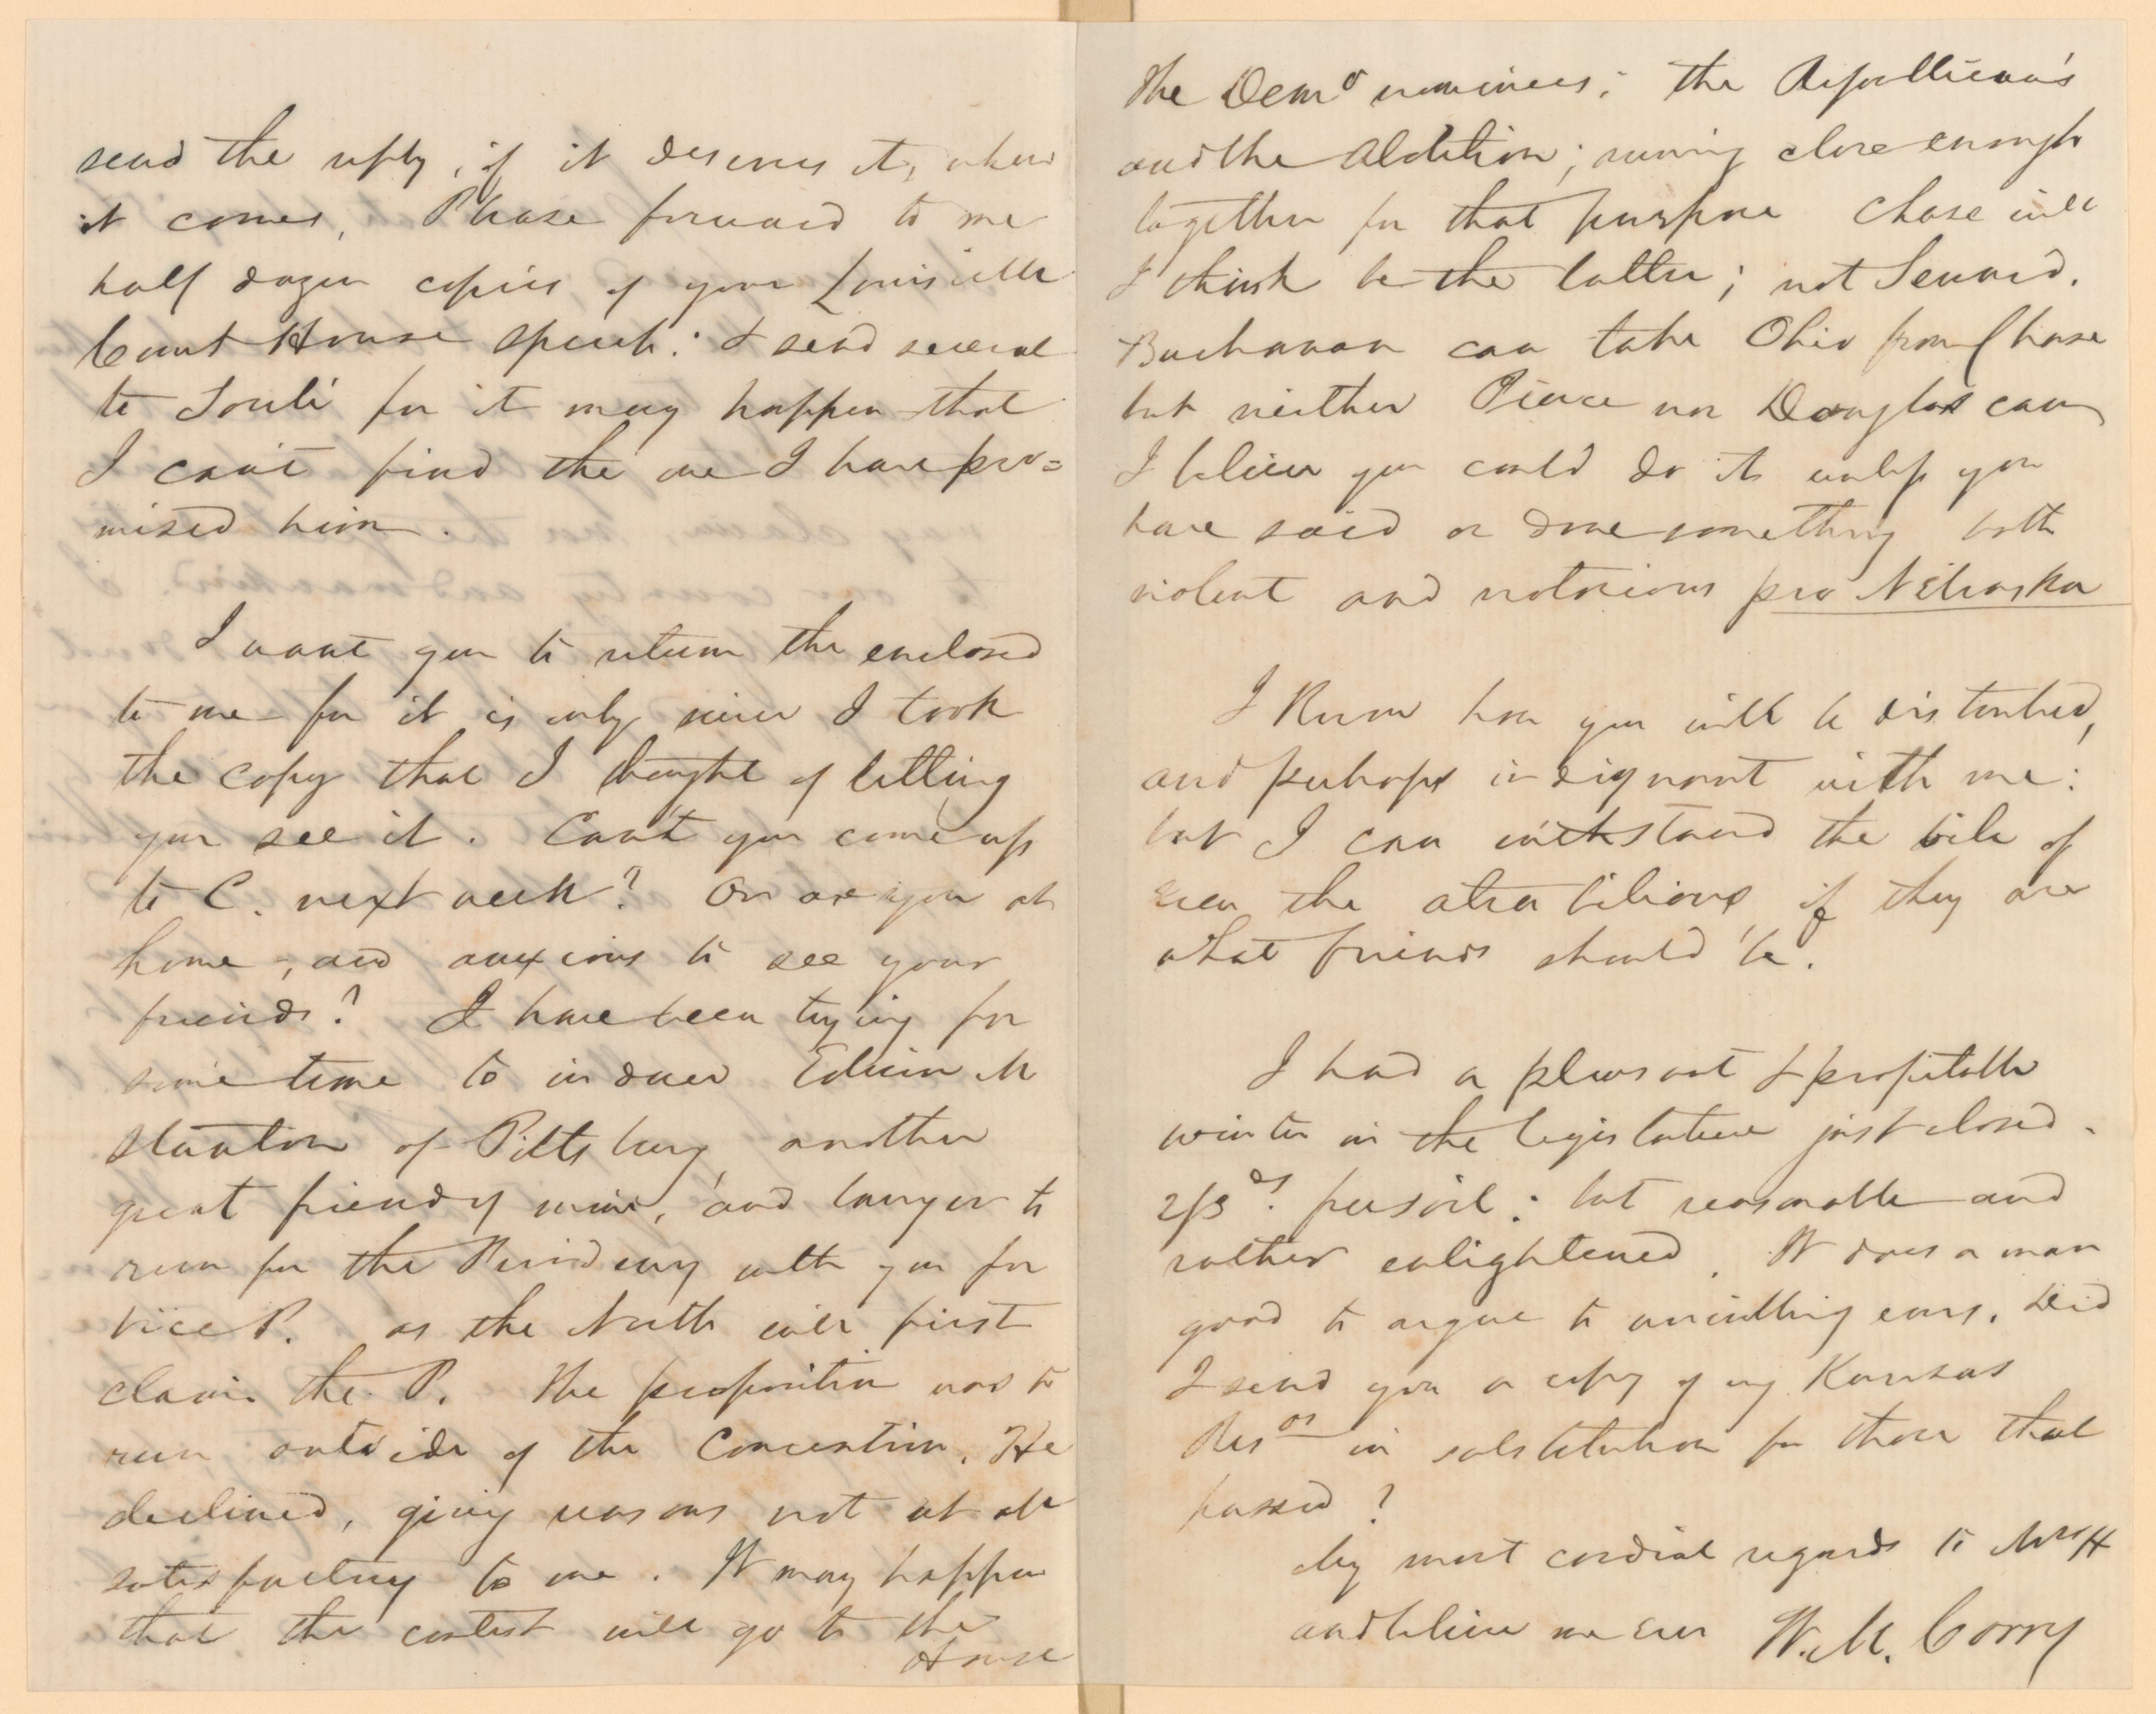 send the reply, if it deserves it, when
it comes. Please forward to me
half dozen copies of your Louisville
Court House speech: I send several
to Soulé for it may happen that
I can't find the one I have pro=
mised him.
I want you to return the enclosed
to me for it is only since I took
the copy that I thought of letting
you see it. Can't you come up
to C. next week? Or are you at
home, and anxious to see your
friends? I have been trying for
some time to induce Edwin M
Stanton of Pittsburg, another
great friend of mine, and lawyer to
run for the Presidency with you for
Vice P. as the North will first
claim the P. The proposition was to
run outside of the Convention. He
declined, giving reasons not at all
satisfactory to me. It may happen
that the contest will go to the
House
the Demo nominees; the Republican's
and the Abolition; running close enough
together for that purpose Chase will
I think be the latter; not Seward.
Buchanan can take Ohio from Chase
but neither Pierce nor Douglas can
I believe you could do it unless you
have said or done something both
violent and notorious pro Nebraska
I know how you will be disturbed,
and perhaps indignant with me:
but I can withstand the bile of
even the atrabilious if they are
what friends should be.
I had a pleasant & profitable
winter in the legislature just closed.
2/3ds. freesoil: but reasonable and
rather enlightened. It does a man
good to argue to unwilling ears. Did
I send you a copy of my Kansas
Resos in substitution for those that
passed?
My most cordial regards to Mrs H
and believe me ever W. M. Corry